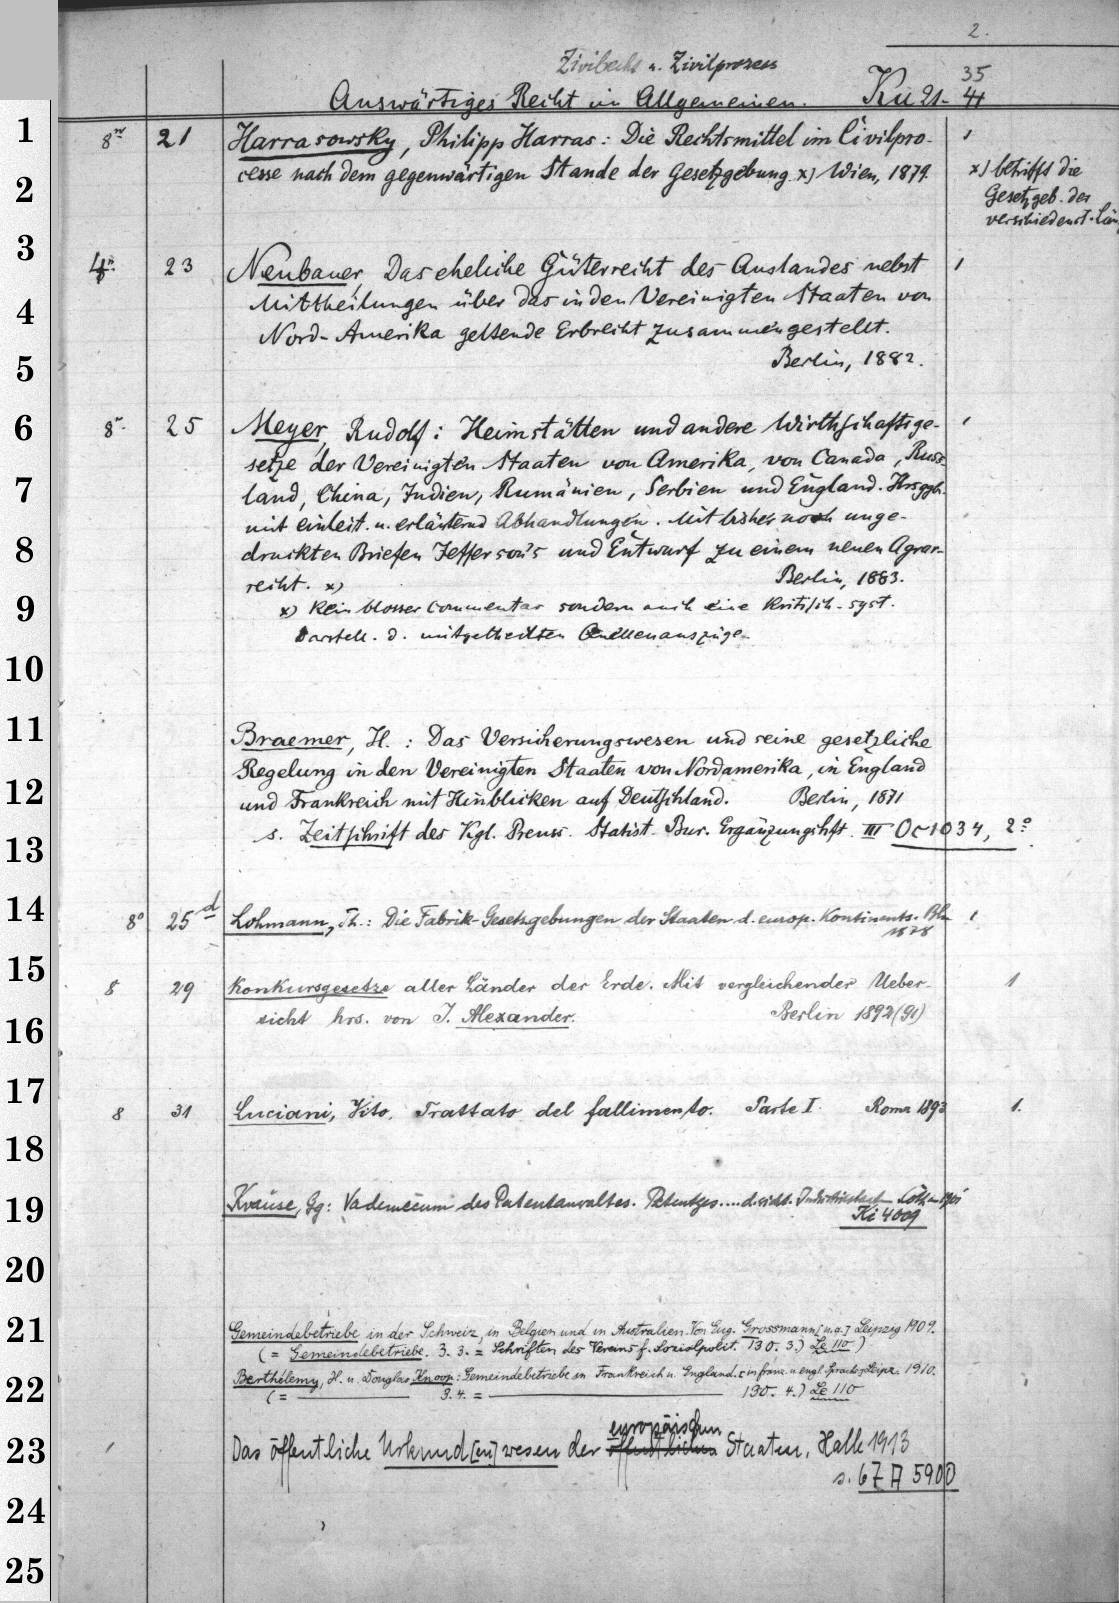 2.
Zivilrecht u. Zivilprozess
35
Auswärtiges Recht im Allgemeinen. Ku 21- 41
1 8° 21 Harrasowsky, Philipp Harras: Die Rechtsmittel im Civilpro-
cesse nach dem gegenwärtigen Stande der Gesetzgebung x) Wien, 1879.
x) betrifft die
2
Gesetzgeb. der
verschiedenst. Län
3
4° 23 Neubauer, Das eheliche Güterrecht des Auslandes nebst
4 Mittheilungen über das in den Vereinigten Staaten von
Nord-Amerika geltende Erbrecht zusammengestellt.
5 Berlin, 1882.
6 8° 25 Meyer, Rudolf: Heimstätten und andere Wirthschaftsge-
setze der Vereinigten Staaten von Amerika, von Canada, Russ-
7 land, China, Indien, Rumänien, Serbien und England. Hrsggb.
mit einleit. u. erläuternd Abhandlungen. Mit bisher noch unge-
8 druckten Briefen Jefferson's und Entwurf zu einem neuen Agrar-
recht. x) Berlin, 1883.
9 x) Kein blosser Commentar sondern auch eine kritisch-syst.
Darstell. d. mitgetheilten Quellenauszüge.
10
11 Braemer, H.: Das Versicherungswesen und seine gesetzliche
Regelung in den Vereinigten Staaten von Nordamerika, in England
12 und Frankreich mit Hinblicken auf Deutschland. Berlin, 1871
s. Zeitschrift des Kgl. Preuss. Statist. Bur. Ergänzungshft III Oc 1034, 2°.
13
14 8° 25d Lohmann, Th.: Die Fabrik-Gesetzgebungen der Staaten d. europ. Kontinents. Bln
1878
15 8 29 Konkursgesetze aller Länder der Erde. Mit vergleichender Ueber- 1
16 sicht hrs. von J. Alexander. Berlin 1892(91)
17 8 31 Luciani, Vito. Trattato del fallimento. Parte I. Roma 1893 1.
18
19 Krause, Gg: Vademecum des Patentanwaltes. Patentges.... d. wicht. Industriestaat
Ki 4009
20
21 Gemeindebetriebe in der Schweiz, in Belgien und in Australien. Von Eug. Grossmann [u.a.] Leipzig 1909.
(= Gemeindebetriebe. 3. 3. = Schriften des Vereins f. Sozialpolit. 130. 3.) Le 110)
22 Berthélemy, H. u. Douglas Knoop: Gemeindebetriebe in Frankreich u. England. [in franz. u. engl. Sprache] Leipz. 1910.
(= 3. 4. = 130. 4.) Le 110
europäischen
23 Das öffentliche Urkund[en]wesen der öffentlichen Staaten, Halle 1913
s. 6 Z A 5900
24
25